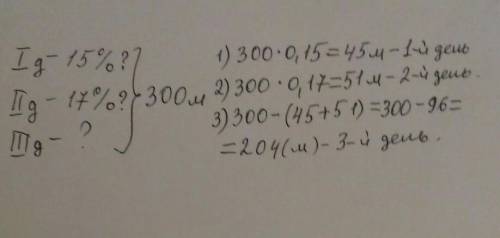 I д - 15%?
II д - 17%?
III д - ?
300м
1) 300·0,15=45м - 1-й день
2) 300·0,17=51м - 2-й день.
3) 300-(45+51)=300-96=
=204(м) - 3-й день.